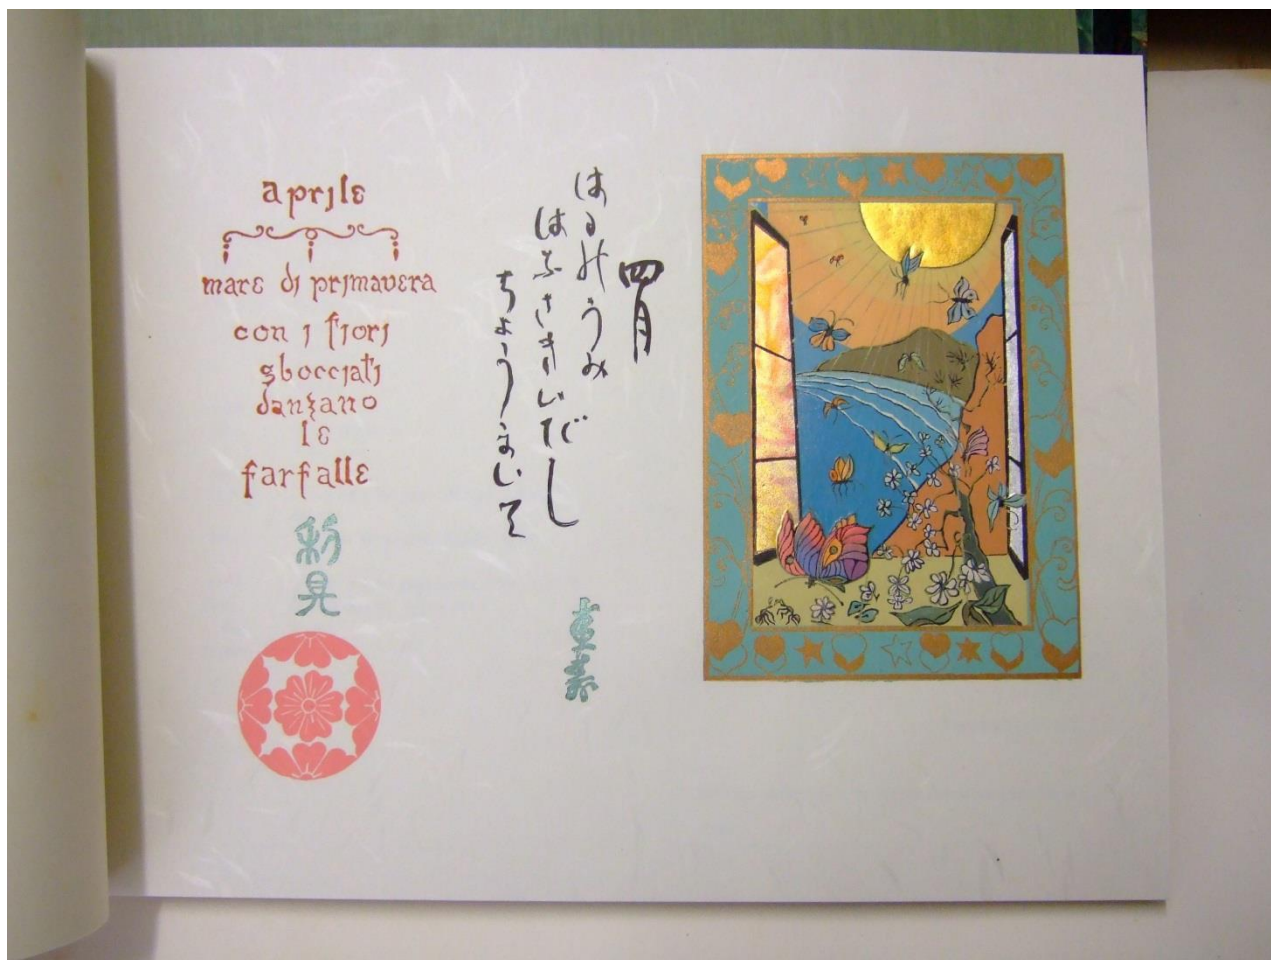 aprile
mare di primavera
con i fiori
sbocciati
danzano
le
farfalle
利晃
四月
はるのうみ
はなさきいだし
ちょうまいて